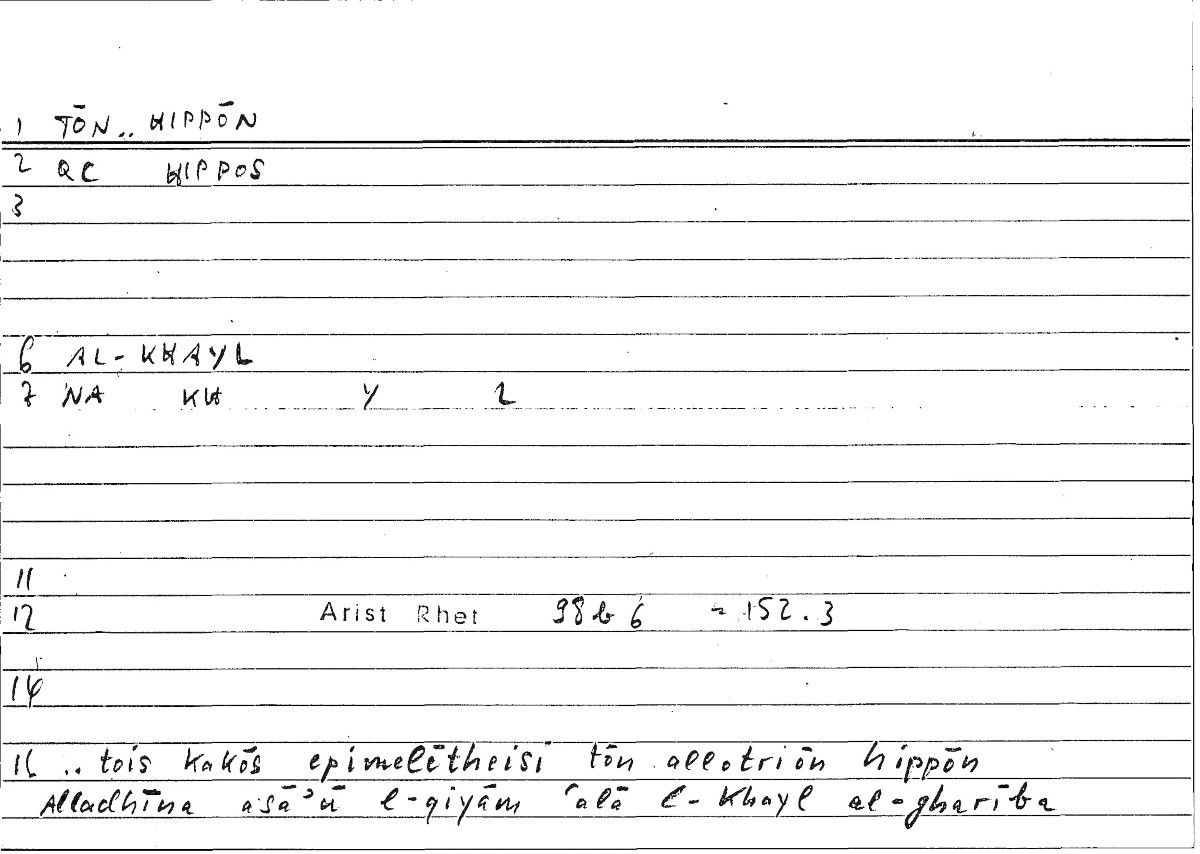 1 TŌN.. HIPPŌN
2 QC HIPPOS
3
6 AL-KHAYL
7 NA KH Y L
11
12 Arist Rhet 98b6 = 152.3
14
16 .. tois kakōs epimelētheisi tōn allotriōn hippōn
Alladhīna asāʾū l-qiyām ʿalā l-khayl al-gharība